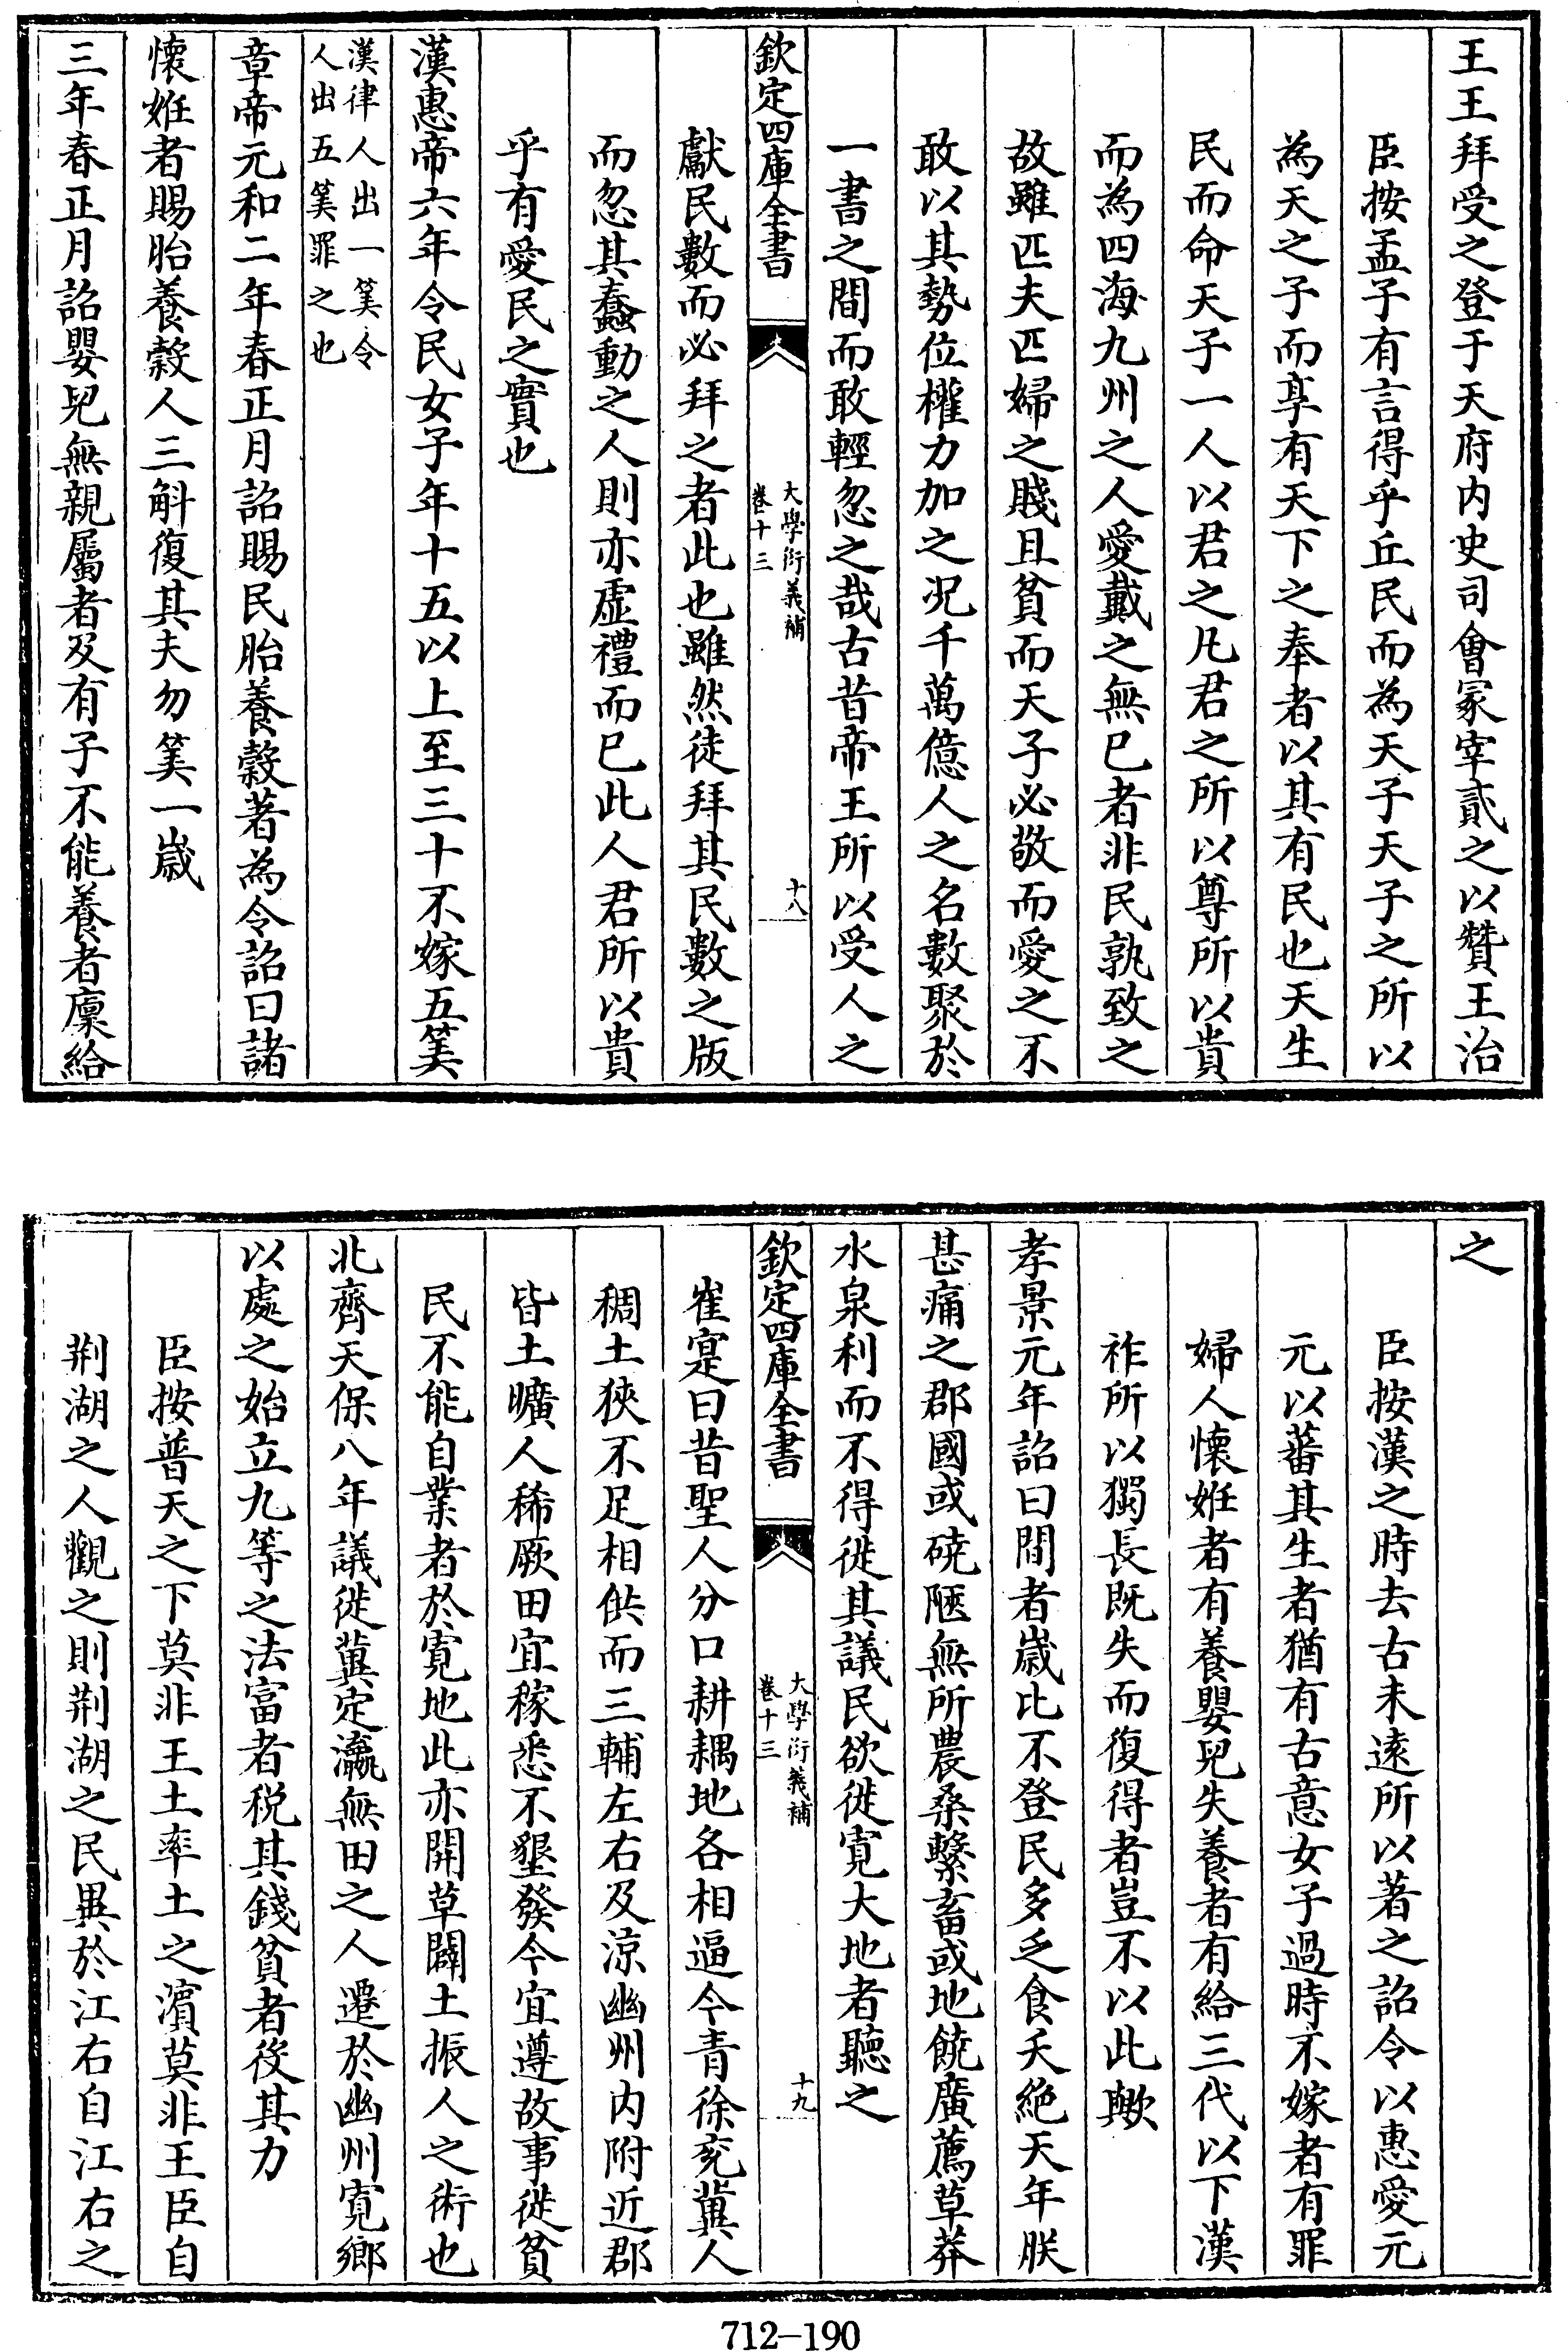 王王拜受之登于天府内史司會冢宰貳之以贊王治
臣按孟子有言得乎丘民而為天子天子之所以
為天之子而享有天下之奉者以其有民也天生
民而命天子一人以君之凡君之所以尊所以貴
而為四海九州之人愛戴之無已者非民孰致之
故雖匹夫匹婦之賤且貧而天子必敬而愛之不
敢以其勢位權力加之况千萬億人之名數聚於
一書之間而敢輕忽之哉古昔帝王所以受人之
欽定四庫全書
大學衍義補
卷十三
十八
獻民數而必拜之者此也雖然徒拜其民數之版
而忽其蠢動之人則亦虚禮而已此人君所以貴
乎有愛民之實也
漢惠帝六年令民女子年十五以上至三十不嫁五筭
漢律人出一筭令
人出五筭罪之也
章帝元和二年春正月詔賜民胎養穀著為令詔曰諸
懷姙者賜胎養穀人三斛復其夫勿筭一歲
三年春正月詔嬰兒無親屬者及有子不能養者廩給
之
臣按漢之時去古未遠所以著之詔令以惠愛元
元以蕃其生者猶有古意女子過時不嫁者有罪
婦人懷姙者有養嬰兒失養者有給三代以下漢
祚所以獨長既失而復得者豈不以此歟
孝景元年詔曰間者歲比不登民多乏食夭絶天年朕
甚痛之郡國或磽陿無所農桑繫畜或地饒廣薦草莽
水泉利而不得徙其議民欲徙寛大地者聽之
欽定四庫全書
大學衍義補
卷十三
十九
崔寔曰昔聖人分口耕耦地各相逼今青徐兖冀人
稠土狹不足相供而三輔左右及凉幽州内附近郡
皆土曠人稀厥田宜稼悉不墾發今宜遵故事徙貧
民不能自業者於寛地此亦開草闢土振人之術也
北齊天保八年議徙冀定瀛無田之人遷於幽州寛鄉
以處之始立九等之法富者税其錢貧者役其力
臣按普天之下莫非王土率土之濵莫非王臣自
荆湖之人觀之則荆湖之民異於江右自江右之
712-190